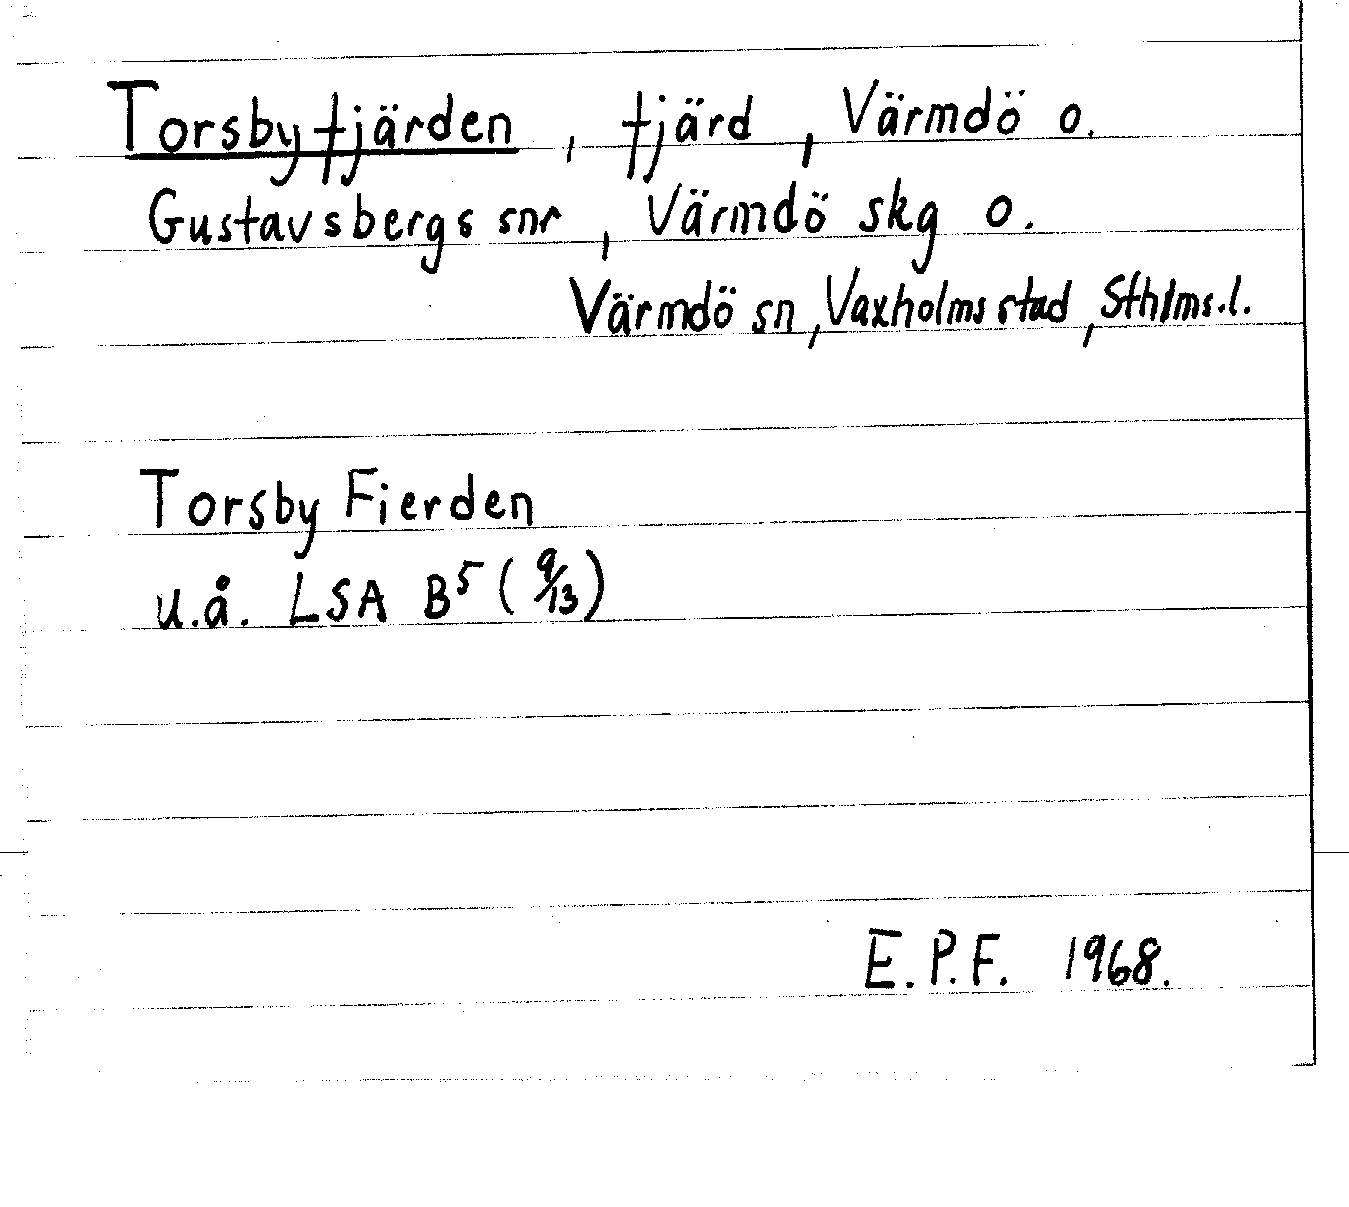 Torsbyfjärden, fjärd, Värmdö o.
Gustavsbergs snr, Värmdö skg o.
Värmdö sn, Vaxholms stad, Sthlms.l.
Torsby Fierden
u.å. LSA B⁵ (9/13)
E.P.F. 1968.